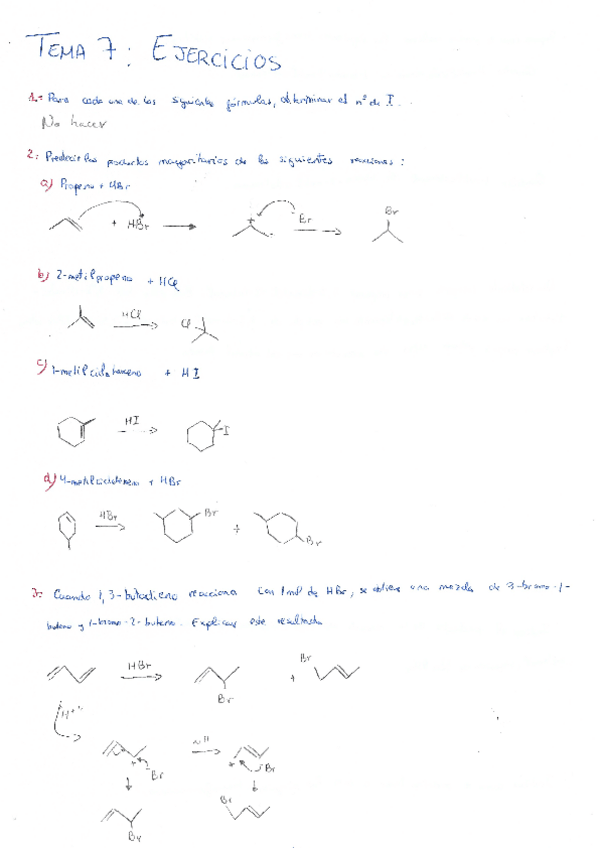 TEMA 7: EJERCICIOS
1.- Para cada una de las siguientes fórmulas, determinar el nº de I...
No hacer
2: Predecir los productos mayoritarios de las siguientes reacciones:
a) Propeno + HBr
+ HBr Br Br
b) 2-metilpropeno + HCl
HCl Cl
c) 1-metilciclohexeno + HI
HI I
d) 4-metilciclohexeno + HBr
HBr Br + Br
3: Cuando 1,3-butadieno reacciona con 1 mol de HBr, se obtiene una mezcla de 3-bromo-1-
buteno y 1-bromo-2-buteno. Explicar este resultado
HBr Br + Br
H+
+ Br + Br
Br Br